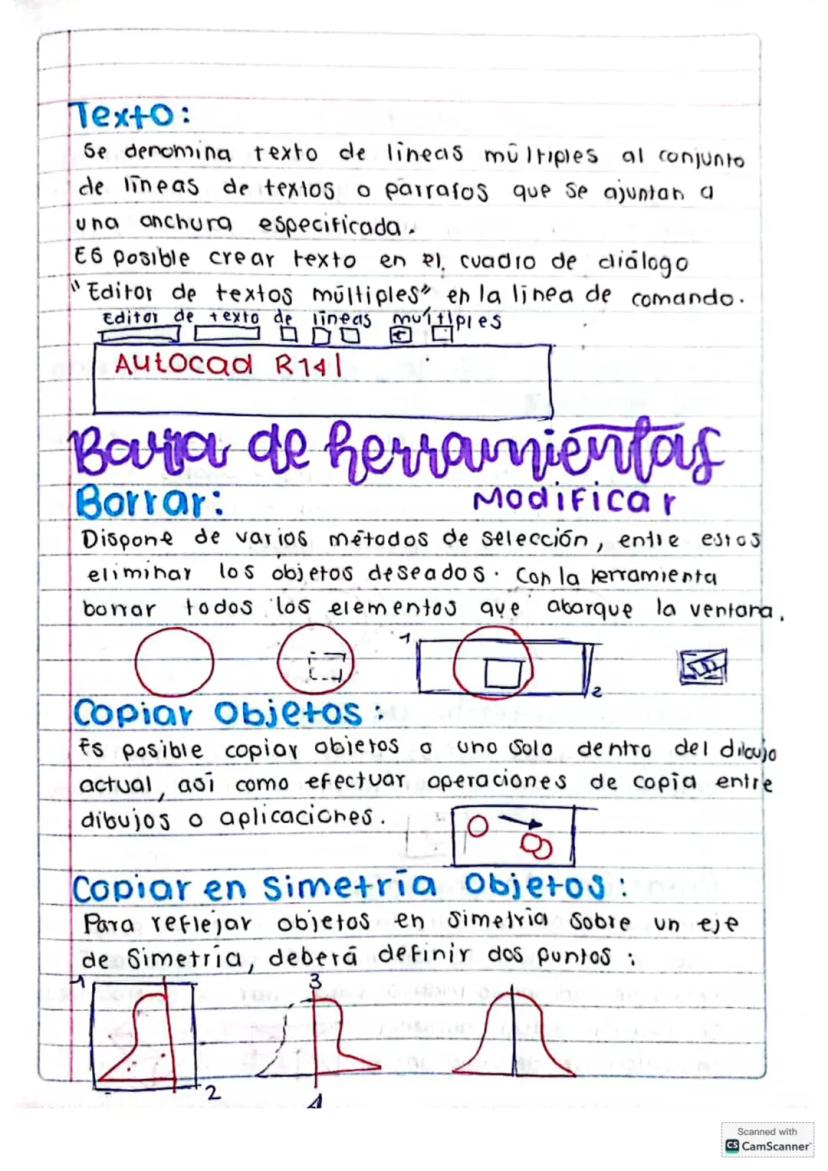 Texto:
Se denomina texto de líneas múltiples al conjunto
de líneas de textos o párrafos que se ajuntan a
una anchura especificada.
Es posible crear texto en el cuadro de diálogo
"Editor de textos múltiples" en la línea de comando.
Editor de texto de líneas multiples
Autocad R14
Barra de herramientas
Borrar: Modificar
Dispone de varios métodos de selección, entre estos
eliminar los objetos deseados. Con la erramienta
borrar todos los elementos que abarque la ventana.
1
2
Copiar Objetos:
Es posible copiar objetos o uno solo dentro del dibujo
actual, así como efectuar operaciones de copia entre
dibujos o aplicaciones.
Copiar en Simetría Objetos:
Para reflejar objetos en simetría sobre un eje
de Simetría, deberá definir dos puntos:
1 3
2 4
Scanned with
CS CamScanner